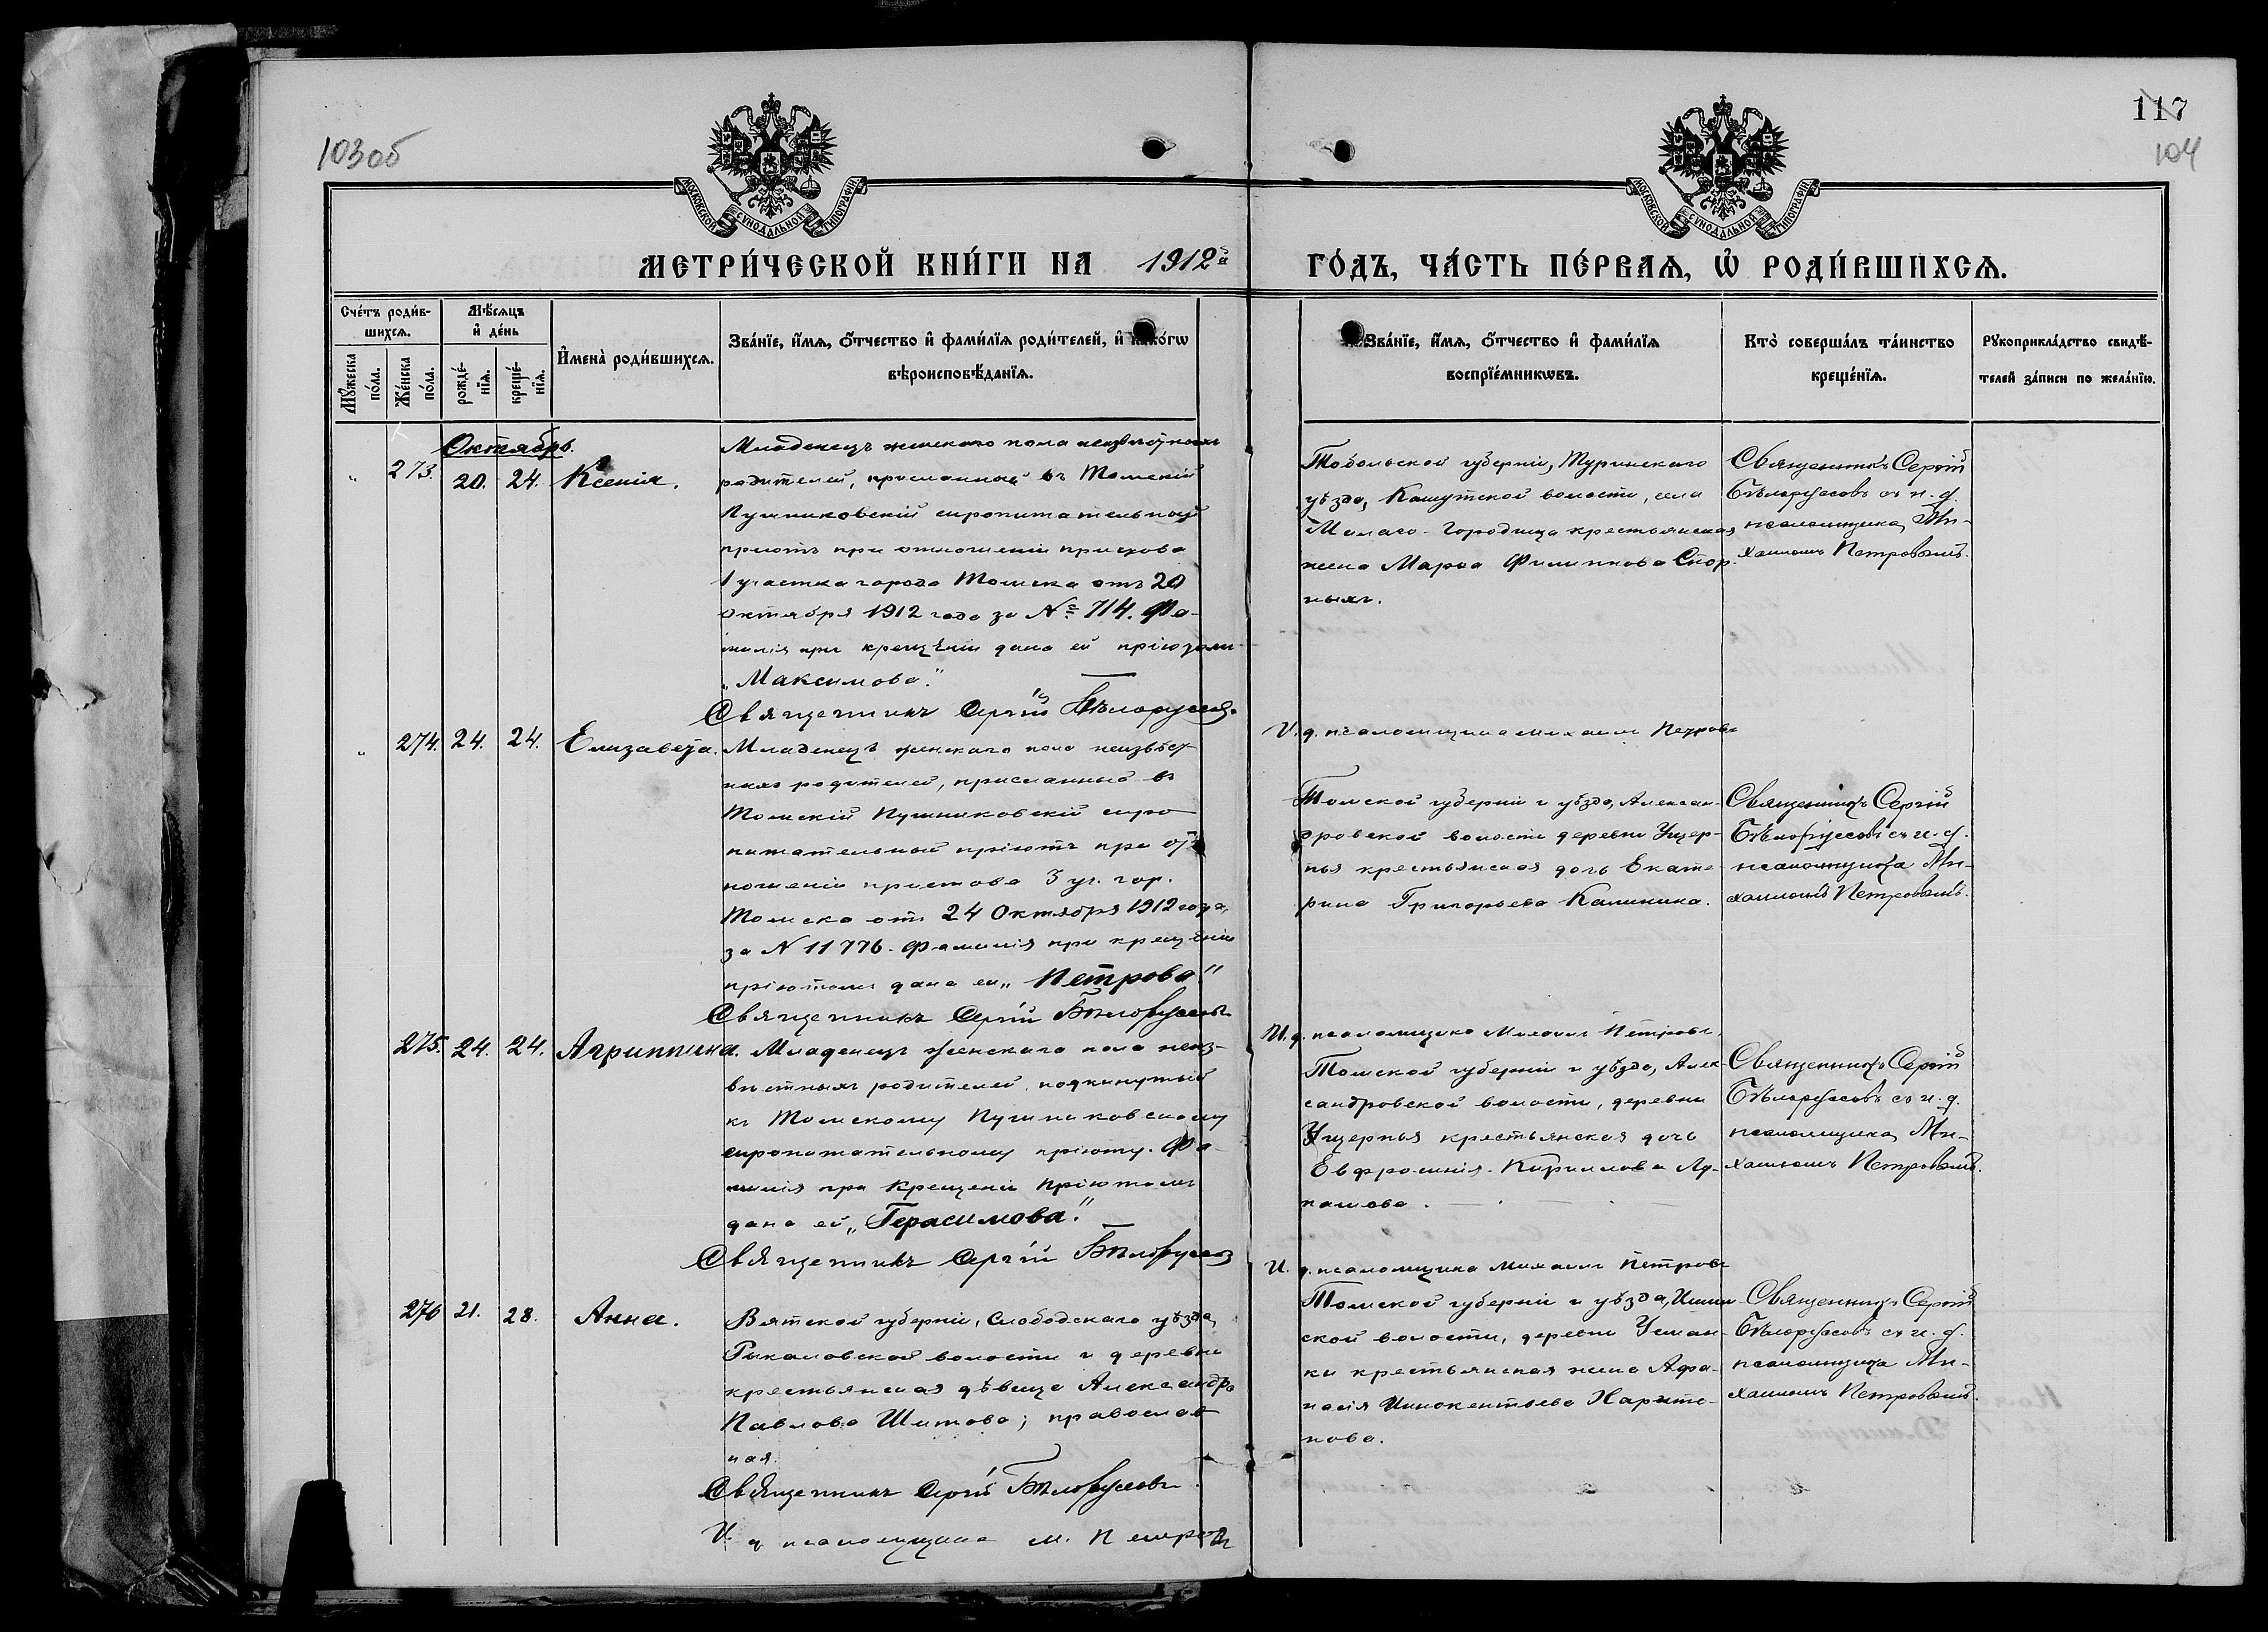 103об
117
104
МОСКОВСКОЙ СѴНОДАЛЬНОЙ ТИПОГРАФІИ.
МОСКОВСКОЙ СѴНОДАЛЬНОЙ ТИПОГРАФІИ.
МЕТРИ́ЧЕСКОЙ КНИ́ГИ НА 1912й ГО́ДЪ, ЧА́СТЬ ПЕ́РВАѦ, Ѡ҆ РОДИ́ВШИХСѦ.
Сче́тъ роди́в-
шихсѧ.
Мꙋ́жеска по́ла.
Же́нска по́ла.
Мѣ́сѧцъ
и҆ де́нь
рожде́-нїѧ.
креще́-нїѧ.
И҆мена̀ роди́вшихсѧ.
Зва́нїе, и҆́мѧ, ѻ҆́тчество и҆ фами́лїѧ роди́телей, и҆ како́гѡ
вѣроисповѣ́данїѧ.
Зва́нїе, и҆́мѧ, ѻ҆́тчество и҆ фами́лїѧ
воспрїе́мникѡвъ.
Кто̀ соверша́лъ та́инство
креще́нїѧ.
Рꙋкоприкла́дство свидѣ́-
телей за́писи по жела́нїю.
Октябрь.
" 273. 20. 24. Ксенія.
Младенецъ женскаго пола неизвѣстныхъ
родителей, присланный въ Томскій
Пушниковскій сиропитательный
пріютъ при отношеніи пристава
1 участка города Томска отъ 20
октября 1912 года за № 714. Фа-
милія при крещеніи дана ей пріютомъ
„Максимова."
Священникъ Сергій Бѣлоруссовъ
Тобольской губерніи, Туринскаго
уѣзда, Кошутской волости, села
Малаго-Городища крестьянская
жена Марѳа Филиппова Спор-
ныхъ.
Священникъ Сергій
Бѣлоруссовъ съ и. д.
псаломщика Ми-
хаиломъ Петровымъ.
И. д. псаломщика Михаилъ Петровъ
" 274. 24. 24. Елизавета.
Младенецъ женскаго пола неизвѣст-
ныхъ родителей, присланный въ
Томскій Пушниковскій сиро-
питательный пріютъ при от-
ношеніи пристава 3 уч. гор.
Томска отъ 24 Октября 1912 года,
за N 11776. Фамилія при крещеніи
пріютомъ дана ей „Петрова"
Священникъ Сергій Бѣлоруссовъ
Томской губерніи и уѣзда, Алексан-
дровской волости деревни Ущер-
пья крестьянская дочь Екате-
рина Григорьева Калинина.
Священникъ Сергій
Бѣлоруссовъ съ и. д.
псаломщика Ми-
хаиломъ Петровымъ.
И. д. псаломщика Михаилъ Петровъ
275. 24. 24. Агриппина.
Младенецъ женскаго пола неиз-
вѣстныхъ родителей, подкинутый
къ Томскому Пушниковскому
сиропитательному пріюту. Фа-
милія при крещеніи пріютомъ
дана ей „Герасимова."
Священникъ Сергій Бѣлоруссовъ
Томской губерніи и уѣзда, Алек-
сандровской волости, деревни
Ущерпья крестьянская дочь
Евфросинія Кириллова
Священникъ Сергій
Бѣлоруссовъ съ и. д.
псаломщика Ми-
хаиломъ Петровымъ.
И. д. псаломщика Михаилъ Петровъ
276 21. 28. Анна.
Вятской губерніи, Слободскаго уѣзда,
волости и деревни
крестьянская дѣвица Александра
Павлова Шитова; православ-
ная.
Священникъ Сергій Бѣлоруссовъ
И. д. псаломщика М. Петровъ
Томской губерніи и уѣзда, Ишим-
ской волости, деревни Усман-
ки крестьянская жена Афа-
насія Иннокентьева Харито-
нова.
Священникъ Сергій
Бѣлоруссовъ съ и. д.
псаломщика Ми-
хаиломъ Петровымъ.